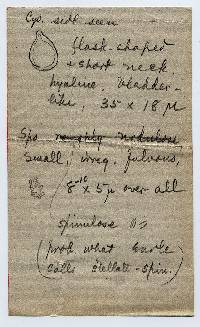 Cys. sidt seen
flask-shaped
+ short neck
hyaline, bladder-
like, 35 x 18 µ
Spo roughly nodulose
small, irreg. fulvous,
8-10 x 5µ over all
spinulose
(prob. what Burt
calls stellate-spin.)